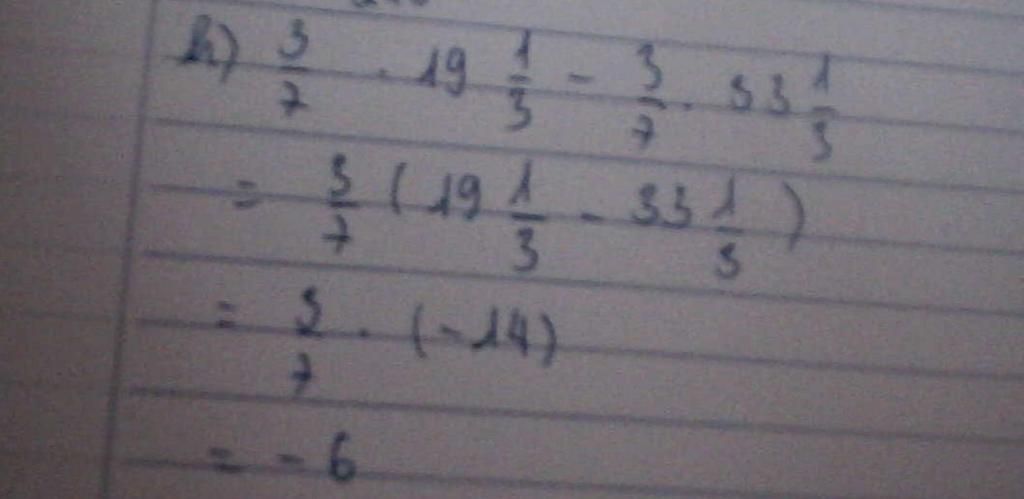 h) 3/7 . 19 1/3 - 3/7 . 33 1/3
= 3/7 ( 19 1/3 - 33 1/3 )
= 3/7 . (-14)
= - 6